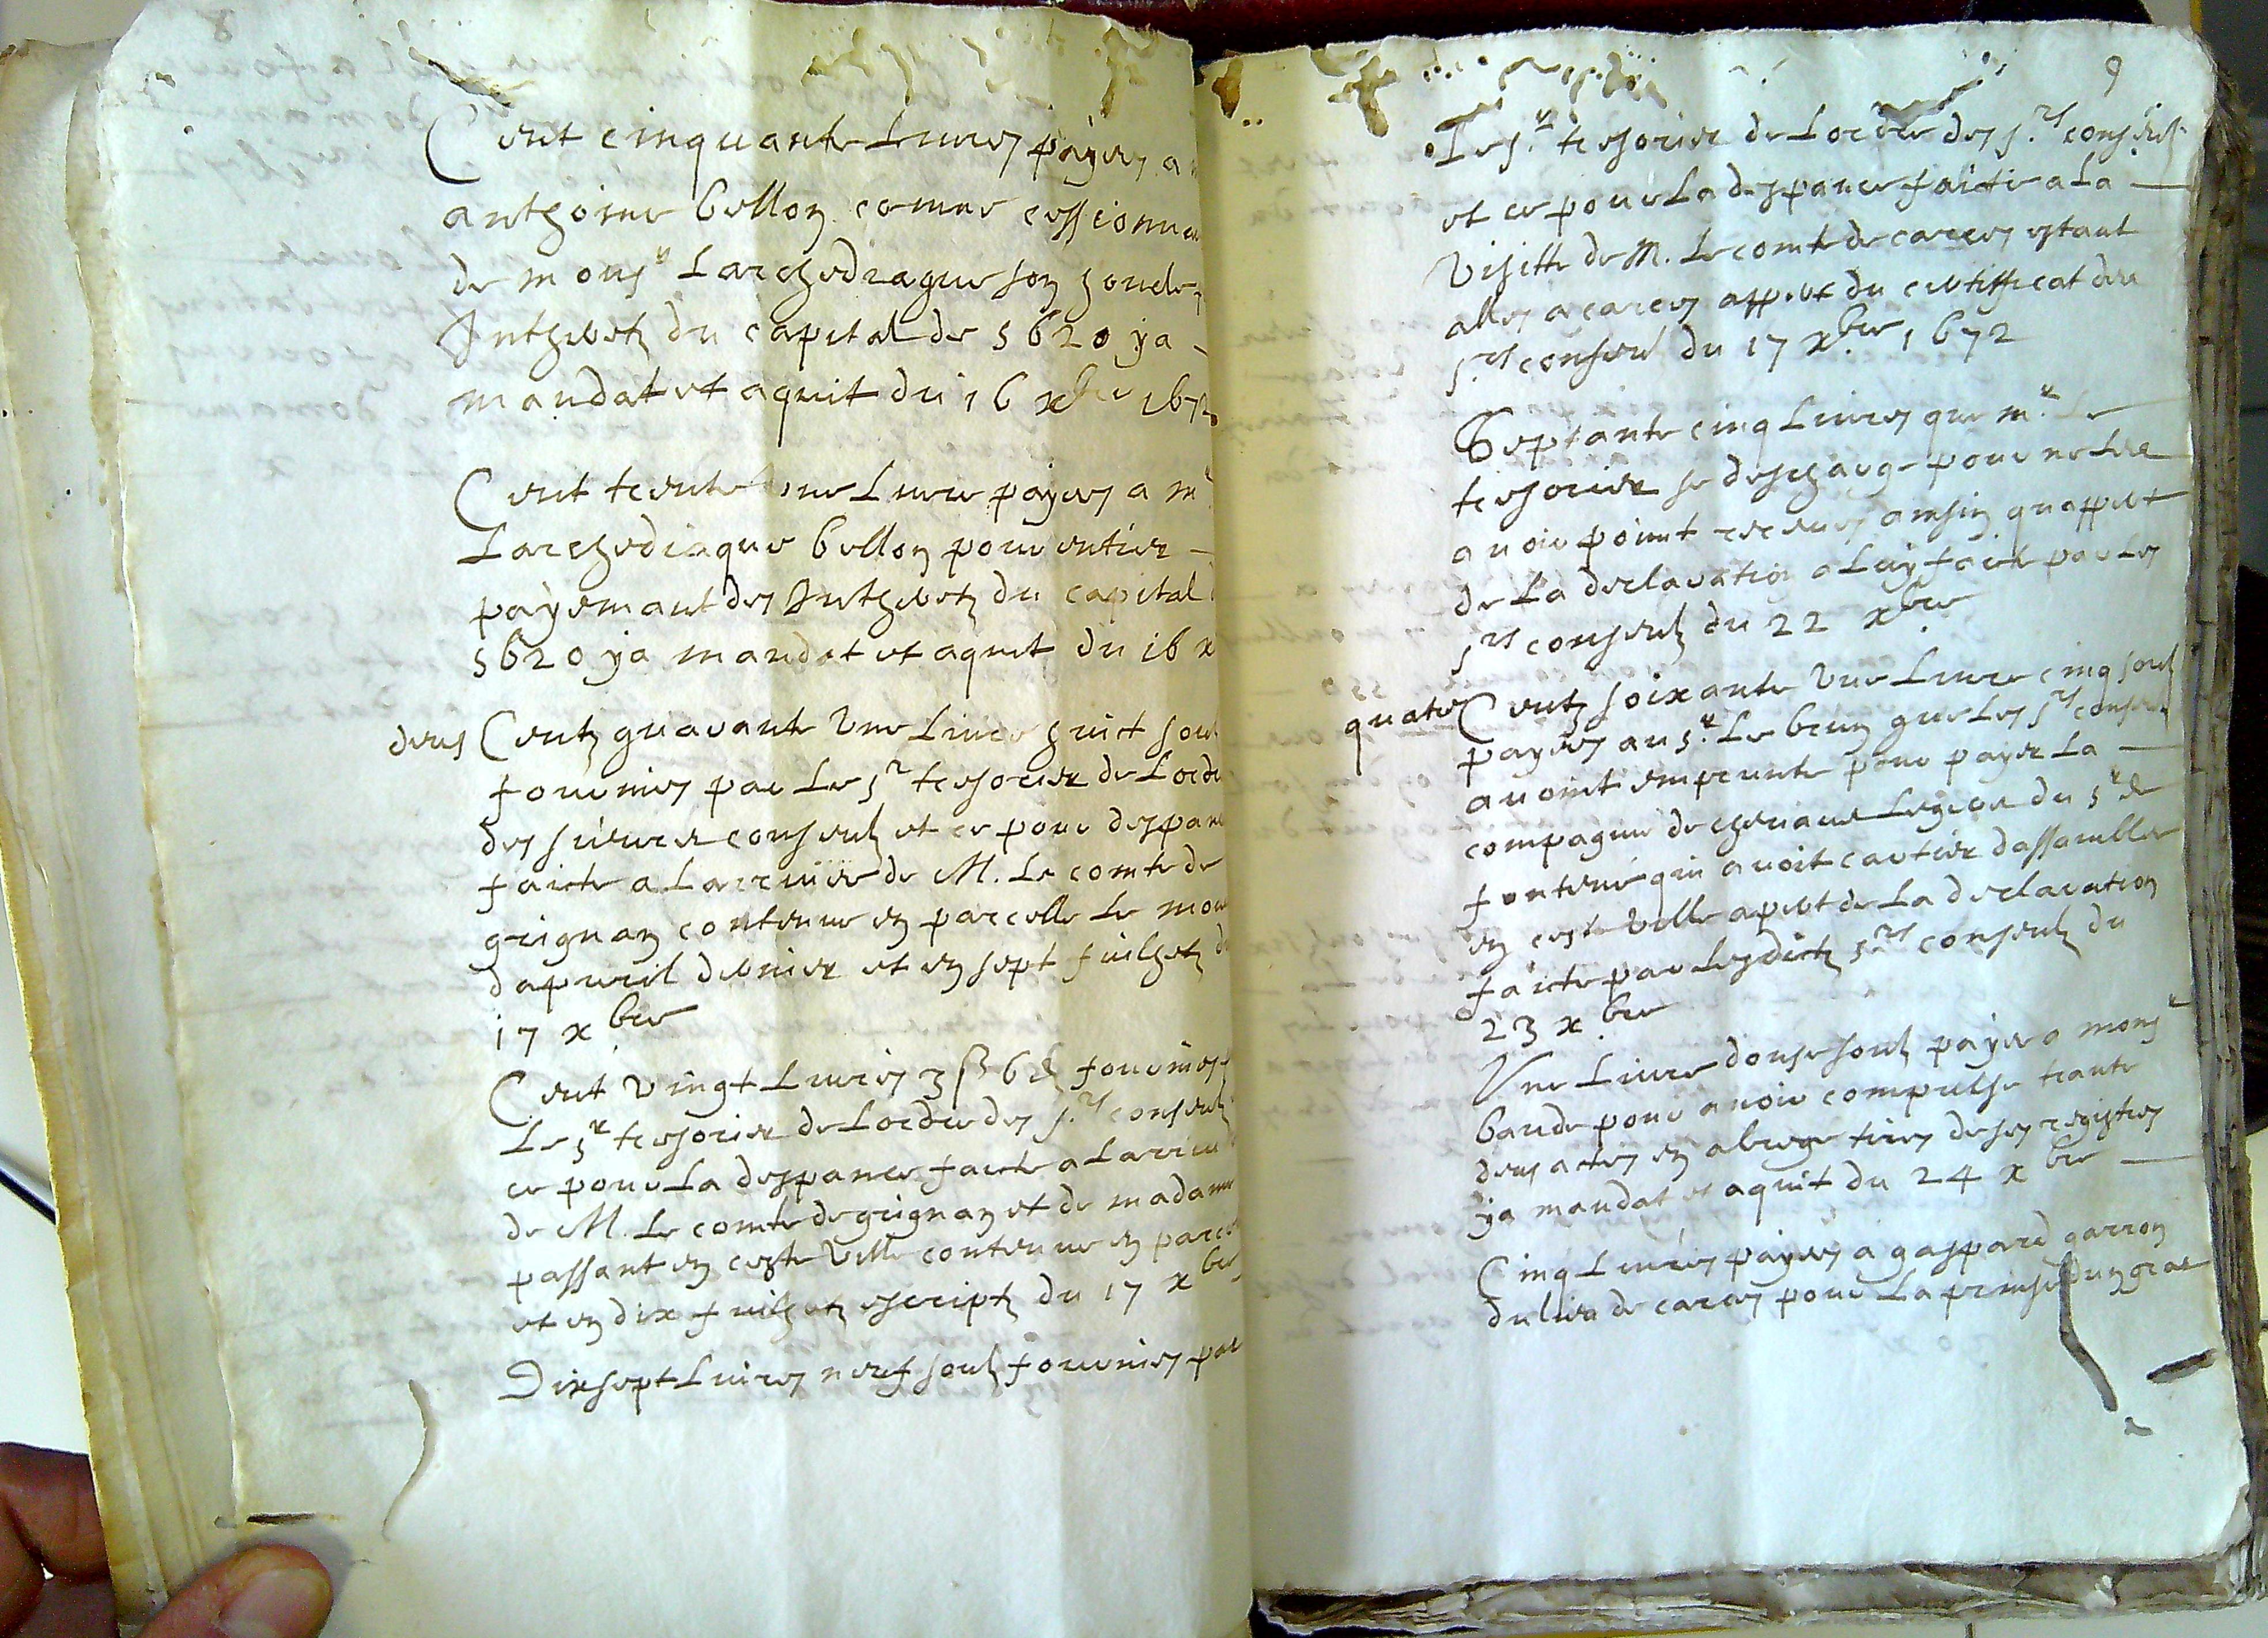 Cent cinquante Livres payes a
anthoine bellon comme cessionne
de monsr Larchediaque son
Intheretz du capital de 5620 ya
mandat et aquit du 16 xbre 1672
Cent trente une Livre payes a mr
Larchediaque bellon pour entier
payemant des Intheretz du capital
5620 ya mandat et aquit du 16 x
deus Centz quarante une Livre huict soul
fournies par Le sr tresorier de Lordre
des sieurs conseulz et ce pour despance
faicte a Larrivee de M. Le comte de
grignan contenue en parcelle Le mois
dapvril dernier et en sept fuilhetz du
17 xbre
Cent vingt Livres 3 s 6 d fournies
Le sr tresorier de Lordre des srs conseulz
ce pour La despance faicte a Larrivee
de M. Le comte de grignan et de madame
passant en ceste ville contenue en parcel
et en dix fuilhetz escriptz du 17 xbre
Dixsept Livres neuf soulz fournies par
9
Le sr tresorier de Lordre des srs conseulz
et ce pour La despance faicte a La
visitte de M. Le comte de carces estant
alles a carces appert du certifficat des
srs conseul du 17 xbre 1672
Septante cinq Livres que mr Le
tresorier se descharge pour ne Les
avoir point receues ainsin quappert
de La declaration a Luy faicte par Les
srs conseulz du 22 xbre
quatre Centz soixante une Livre cinq soulz
payes au sr Le brun que Les srs conseulz
avoint emprunte pour payer La
compagnie de chevaux Legers du sr de
fontenie qui avoit cartier dassambllee
en ceste ville apert de La declaration
faicte par Lesdictz srs conseulz du
23 xbre
Une Livre douse soulz paye a monsr
baude pour avoir compulse trante
deus actes en abrege tires de ses registres
ya mandat et aquit du 24 xbre
Cinq Livres payes a gaspard garron
du lieu de carces pour La prinse dung